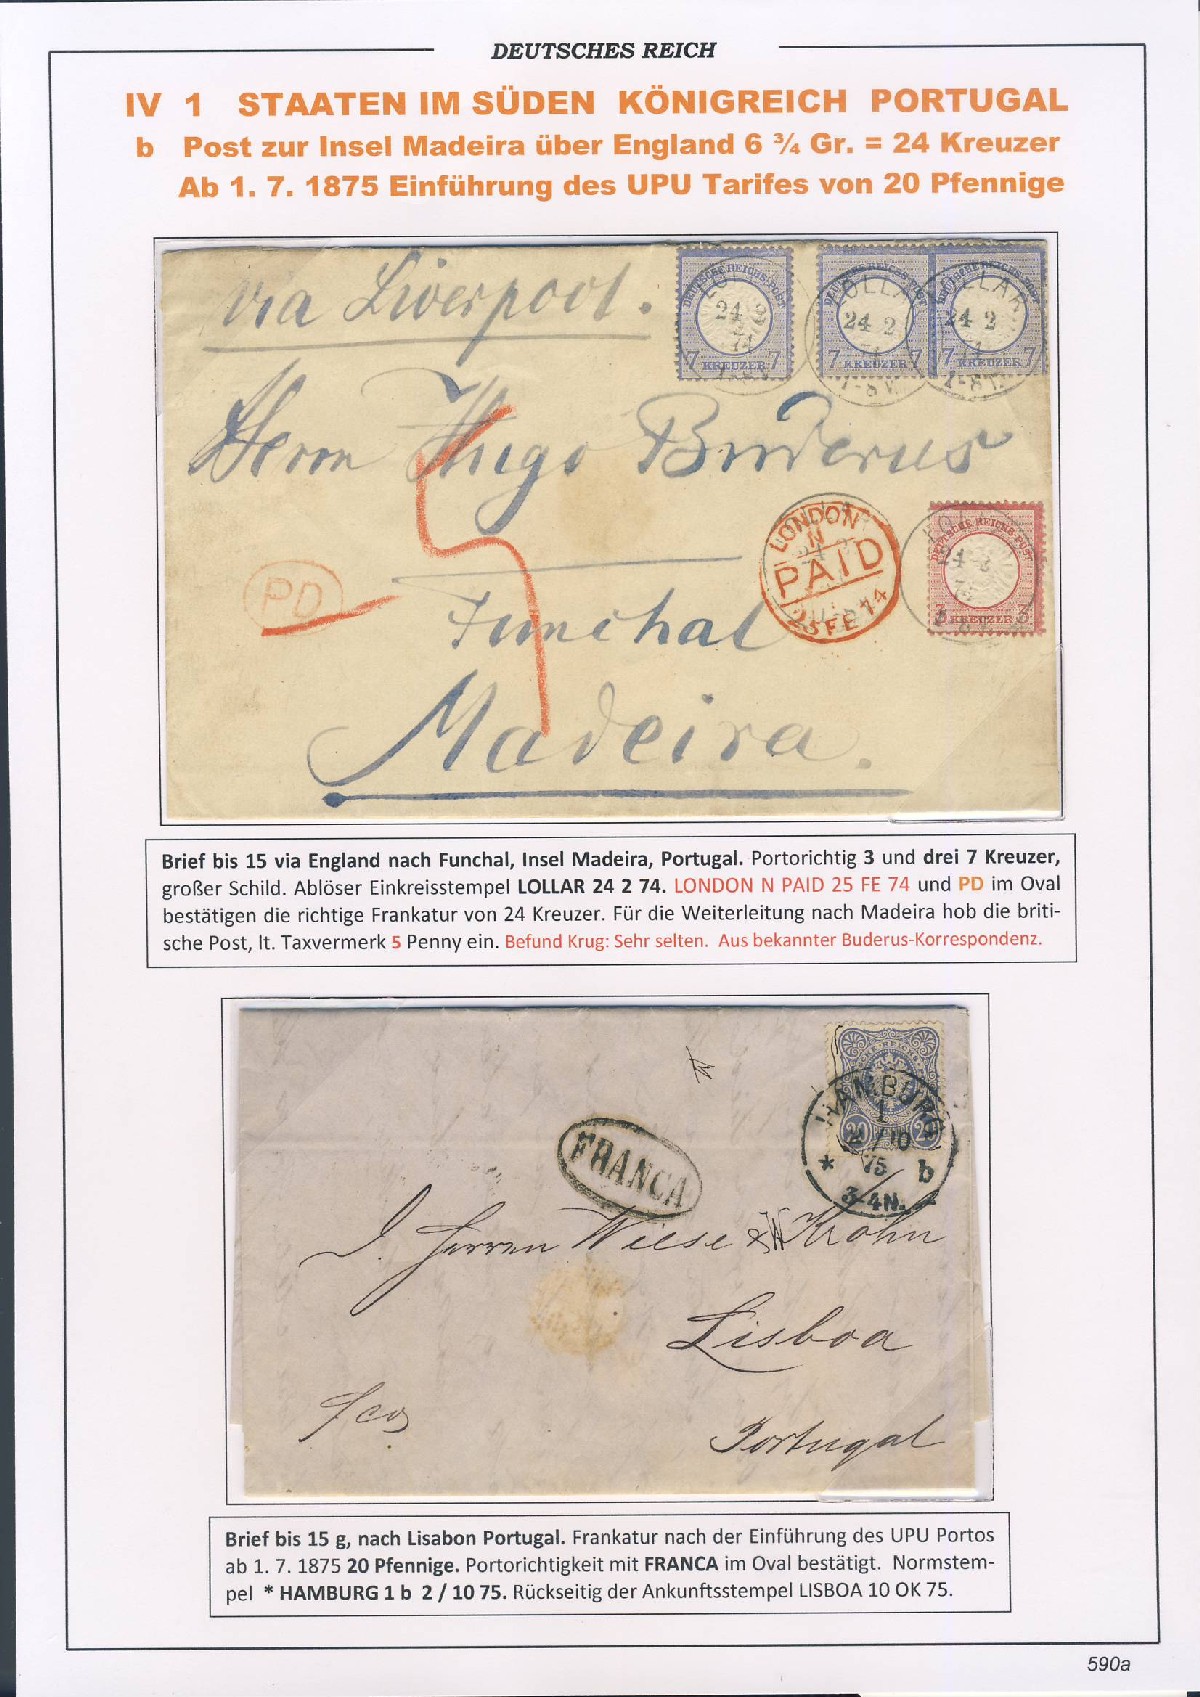 DEUTSCHES REICH
IV 1 STAATEN IM SÜDEN KÖNIGREICH PORTUGAL
b Post zur Insel Madeira über England 6 ¾ Gr. = 24 Kreuzer
Ab 1. 7. 1875 Einführung des UPU Tarifes von 20 Pfennige
via Liverpool.
DEUTSCHE REICHS-POST
7 KREUZER 7
24 2
74
DEUTSCHE REICHS-POST
7 KREUZER 7
LOLLAR
24 2
DEUTSCHE REICHS-POST
7 KREUZER 7
LOLLAR
24 2
Herrn Hugo Buderus
5
PD
LONDON
N
PAID
25 FE 74
DEUTSCHE REICHS-POST
3 KREUZER 3
Funchal
Madeira.
Brief bis 15 via England nach Funchal, Insel Madeira, Portugal. Portorichtig 3 und drei 7 Kreuzer,
großer Schild. Ablöser Einkreisstempel LOLLAR 24 2 74. LONDON N PAID 25 FE 74 und PD im Oval
bestätigen die richtige Frankatur von 24 Kreuzer. Für die Weiterleitung nach Madeira hob die briti-
sche Post, lt. Taxvermerk 5 Penny ein. Befund Krug: Sehr selten. Aus bekannter Buderus-Korrespondenz.
20 20
HAMBURG
1
2/10
75
* b
3-4N.
FRANCA
Herren Wiese & Krohn
Lisboa
Portugal
Brief bis 15 g, nach Lisabon Portugal. Frankatur nach der Einführung des UPU Portos
ab 1. 7. 1875 20 Pfennige. Portorichtigkeit mit FRANCA im Oval bestätigt. Normstem-
pel * HAMBURG 1 b 2 / 10 75. Rückseitig der Ankunftsstempel LISBOA 10 OK 75.
590a